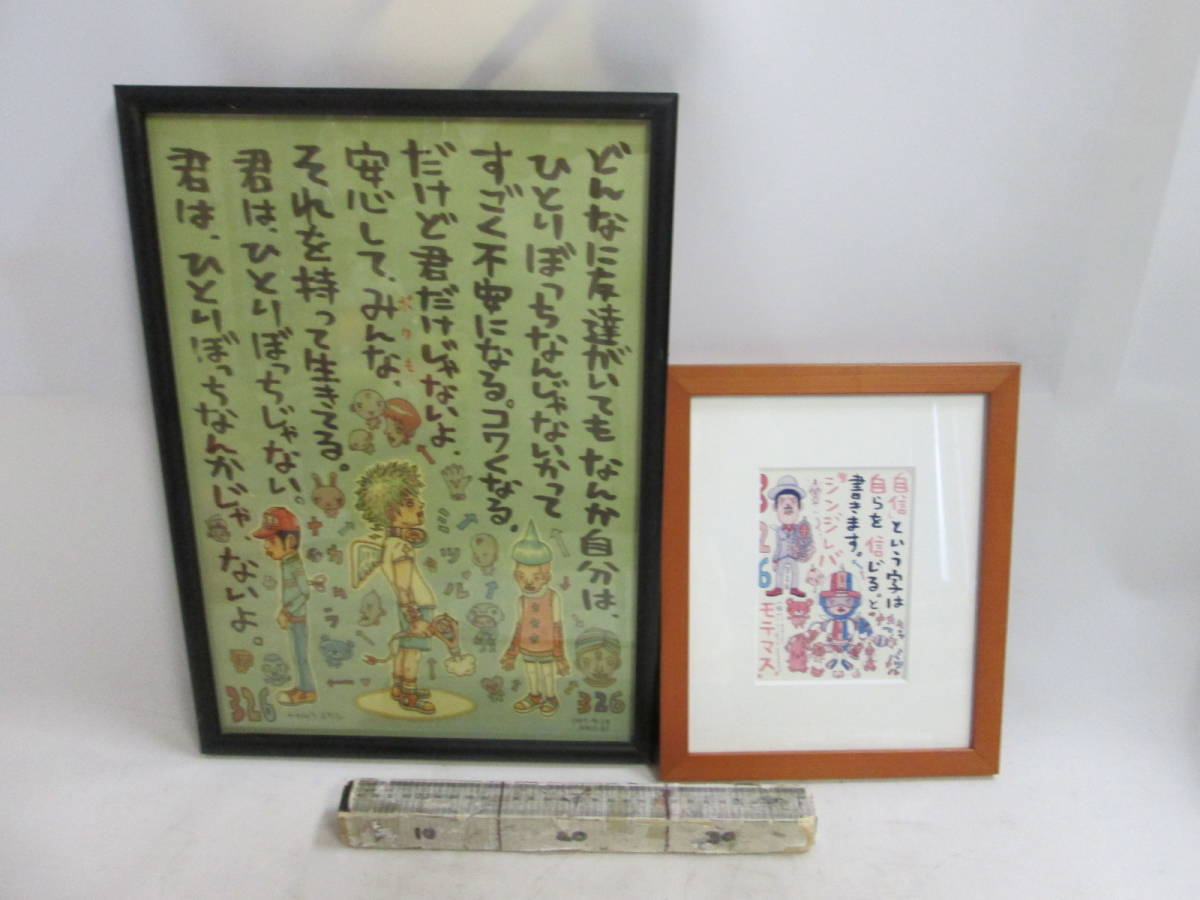 どんなに友達がいてもなんか自分は、
ひとりぼっちなんじゃないかって
すごく不安になる。コワくなる。
だけど君だけじゃないよ、
ボクも
安心して、みんな、
それを持って生きてる。
君は、ひとりぼっちじゃない。
君は、ひとりぼっちなんかじゃないよ。
ミツル
ナカムラ
326
326
「自信」という字は
自らを信じる。と
書きます。
シンジレバ
モテマス。
326
10
20
30